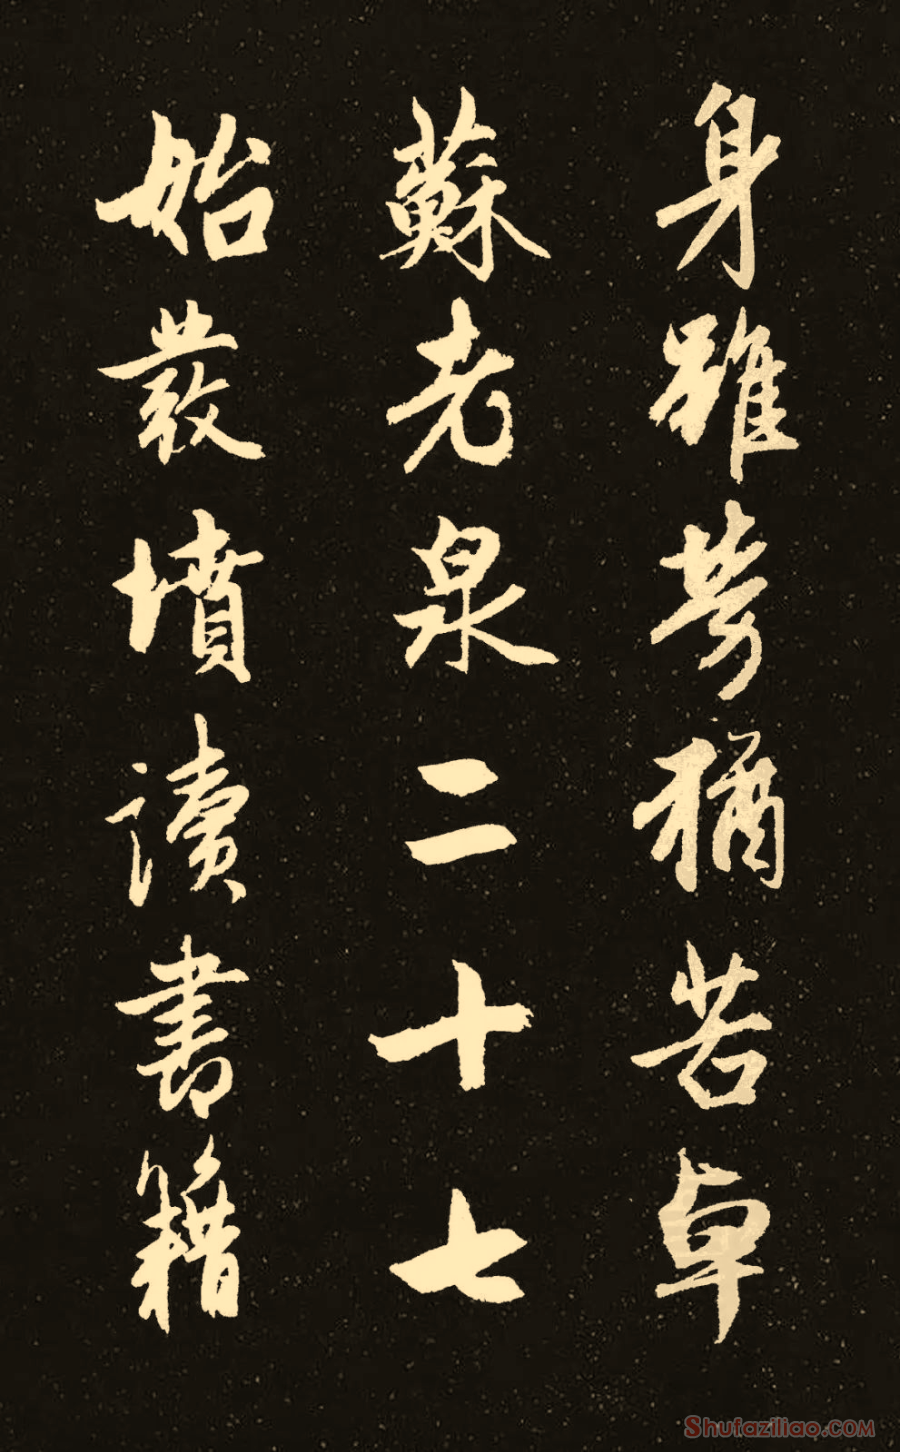 身雖勞猶苦卓
蘇老泉二十七
始發憤讀書籍
Shufaziliao.COM